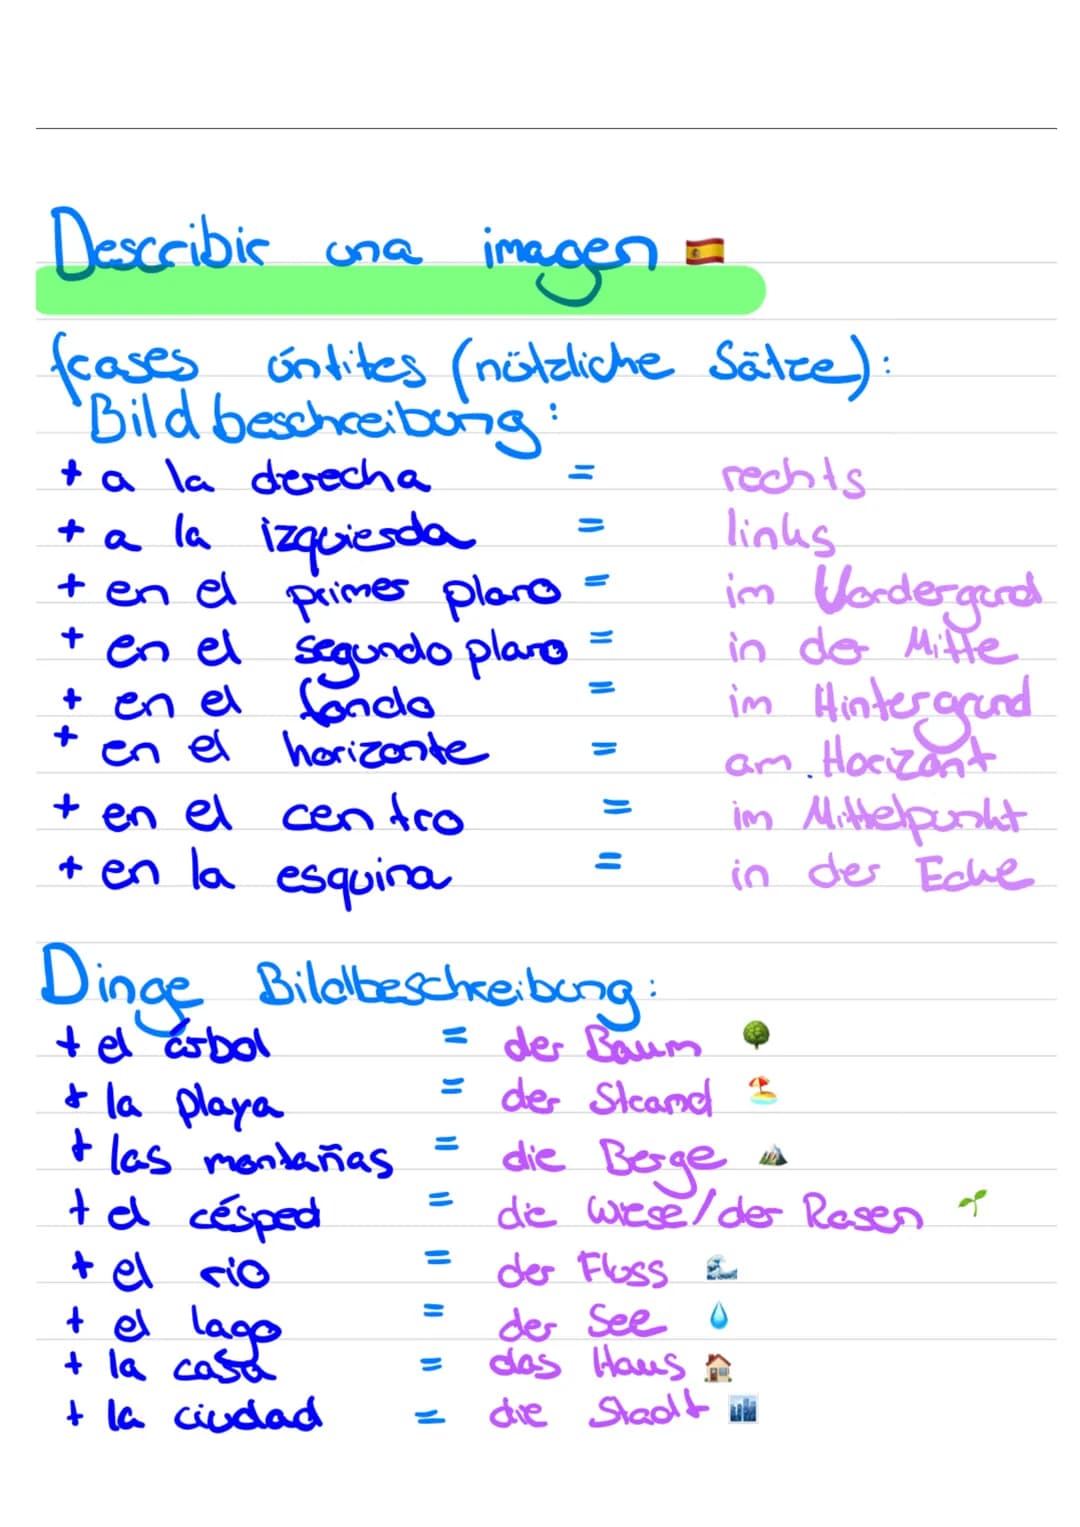 Describir una imagen 🇪🇸
frases úntites (nützliche Sätze):
Bildbeschreibung:
+ a la derecha = rechts
+ a la izquierda = links
+ en el primer plano = im Vordergrund
+ en el segundo plano = in der Mitte
+ en el fondo = im Hintergrund
+ en el horizonte = am Horizont
+ en el centro = im Mittelpunkt
+ en la esquina = in der Ecke
Dinge Bildbeschreibung:
+ el árbol = der Baum 🌳
+ la playa = der Strand 🏖️
+ las montañas = die Berge 🏔️
+ el césped = die Wiese/der Rasen 🌱
+ el rio = der Fluss 🌊
+ el lago = der See 💧
+ la casa = das Haus 🏠
+ la ciudad = die Stadt 🏙️